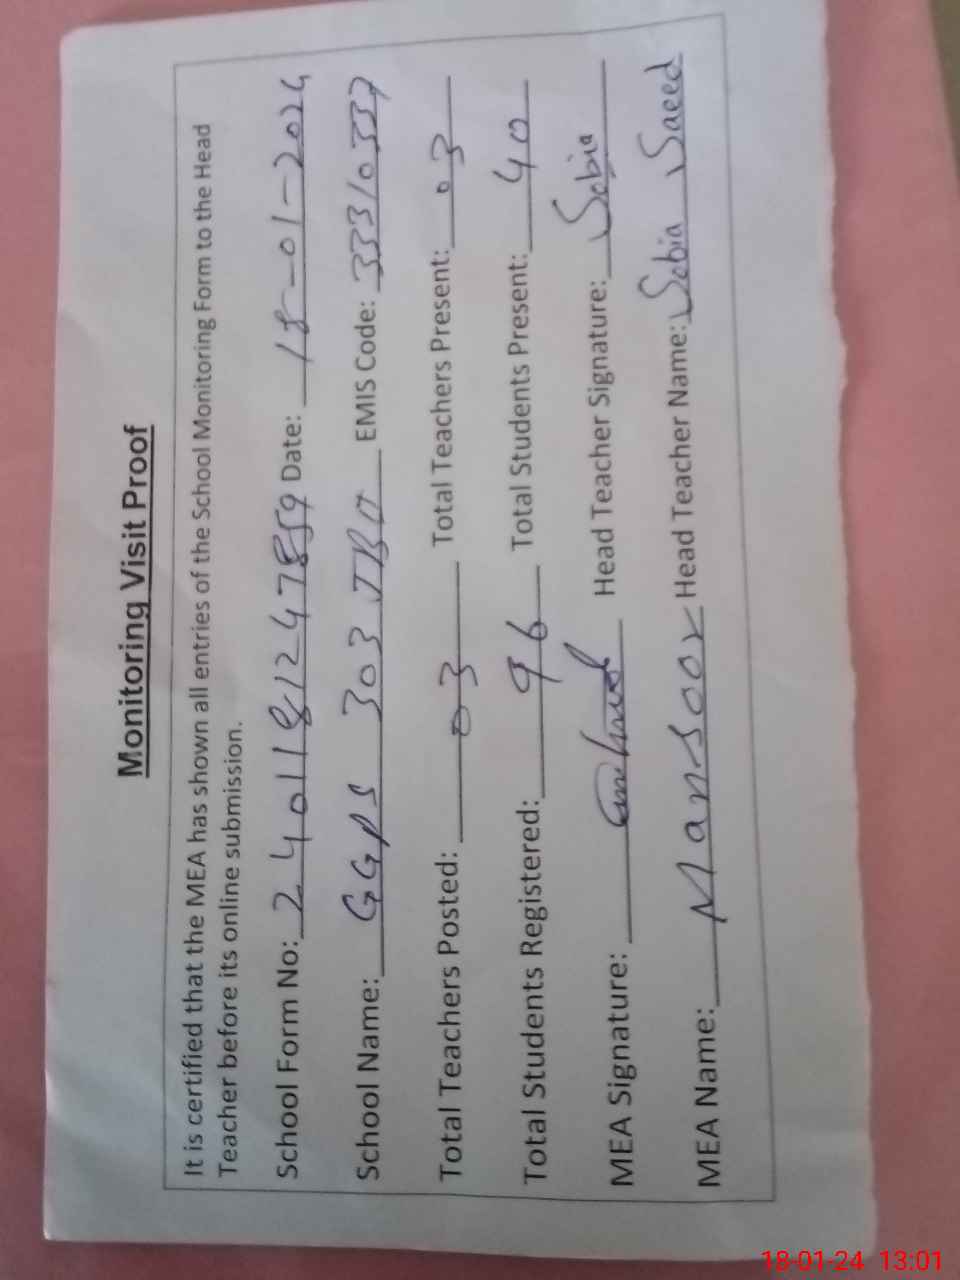 Monitoring Visit Proof
It is certified that the MEA has shown all entries of the School Monitoring Form to the Head
Teacher before its online submission.
School Form No: 24011812247859 Date: 18-01-2024
School Name: GGPS 303 JB EMIS Code: 33310337
Total Teachers Posted: 03 Total Teachers Present: 03
Total Students Registered: 96 Total Students Present: 40
MEA Signature: Head Teacher Signature: Sobia
MEA Name: Mansoor Head Teacher Name: Sobia Saeed
18-01-24 13:01